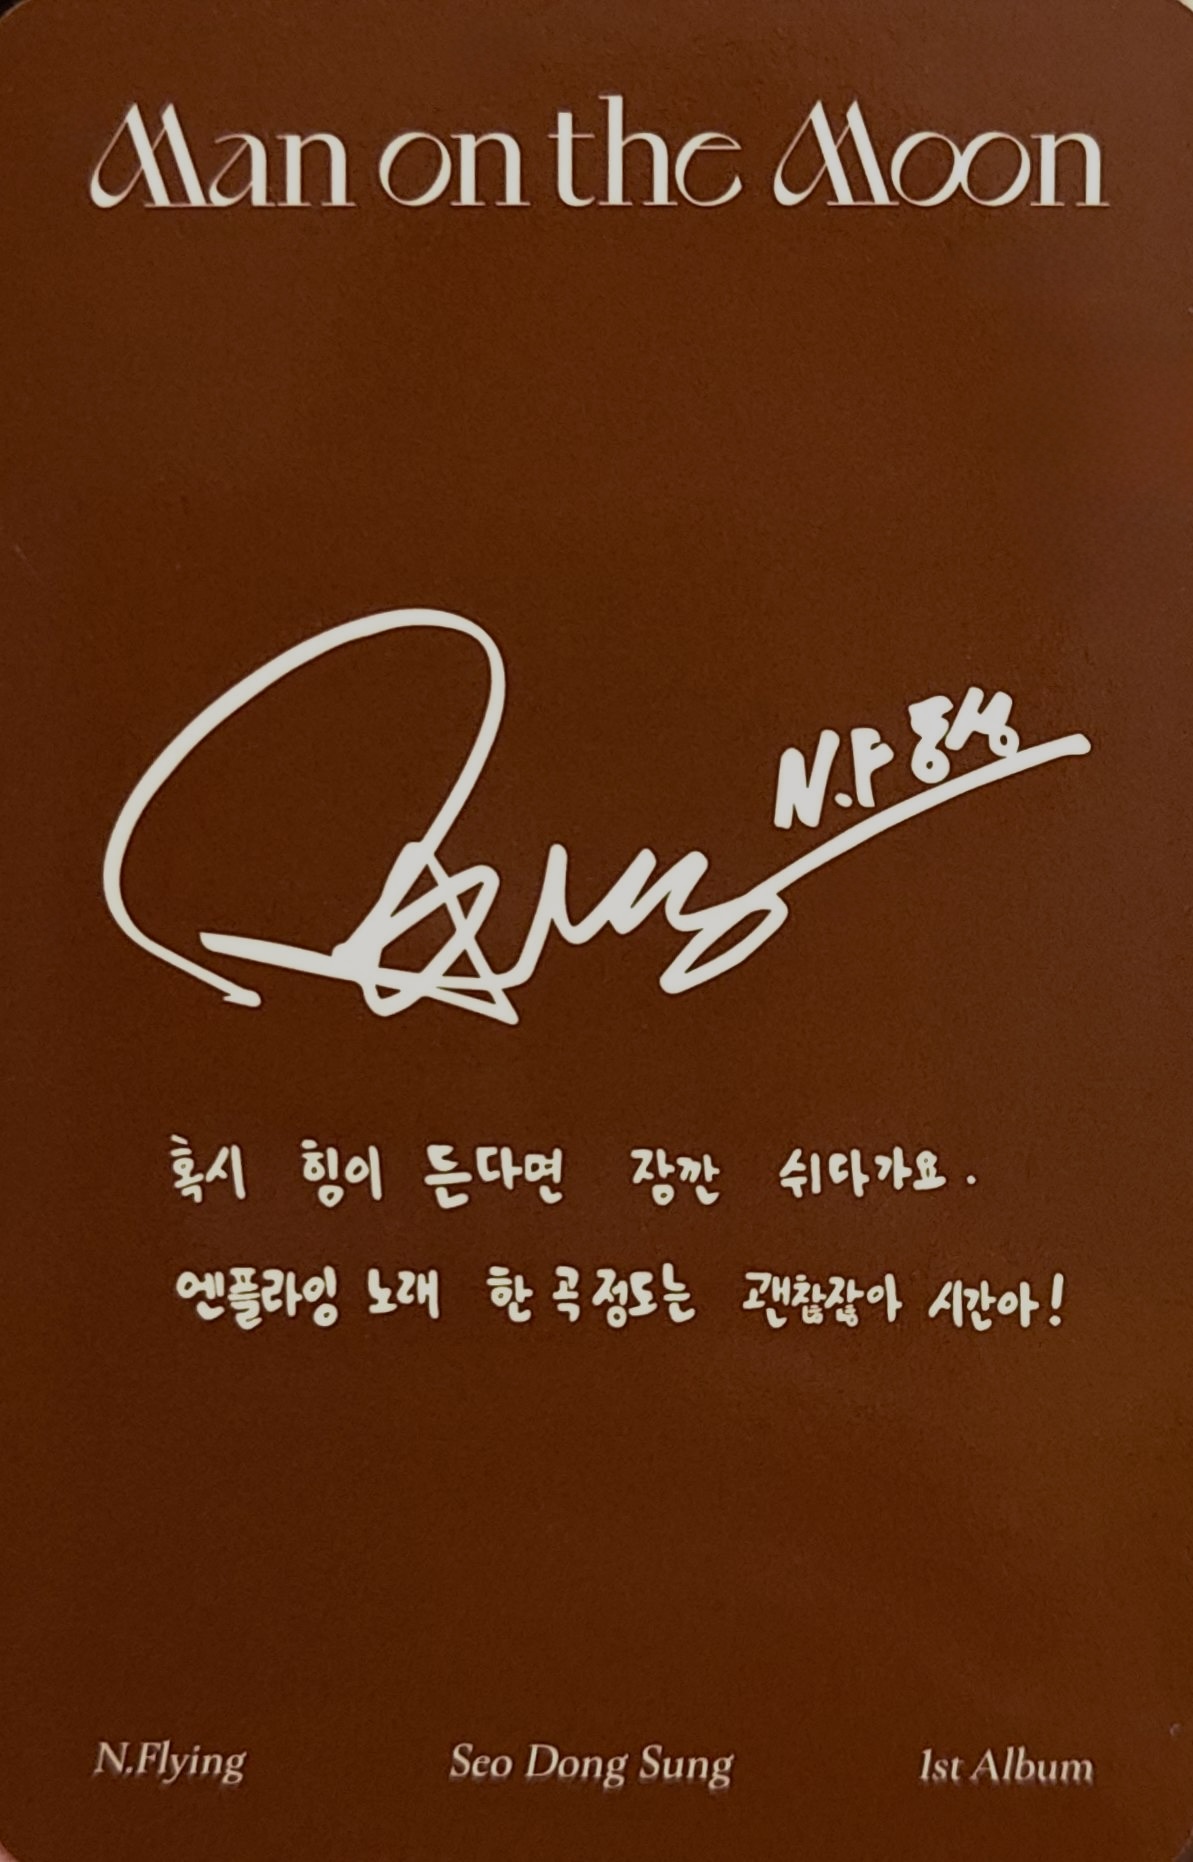 Man on the Moon
N.F 동성
혹시 힘이 든다면 잠깐 쉬다가요.
엔플라잉 노래 한 곡 정도는 괜찮잖아 시간아!
N.Flying Seo Dong Sung 1st Album